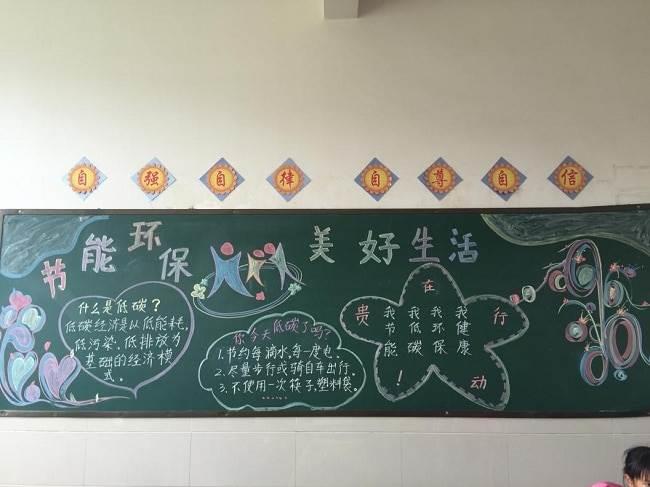 自强自律自尊自信
节能环保 美好生活
什么是低碳？
低碳经济是以低能耗、
低污染、低排放为
基础的经济模
式。
你今天低碳了吗？
1.节约每滴水,每一度电。
2.尽量步行或骑自车出行。
3.不使用一次筷子,塑料袋。
......
贵在行动！
我节能
我低碳
我环保
我健康